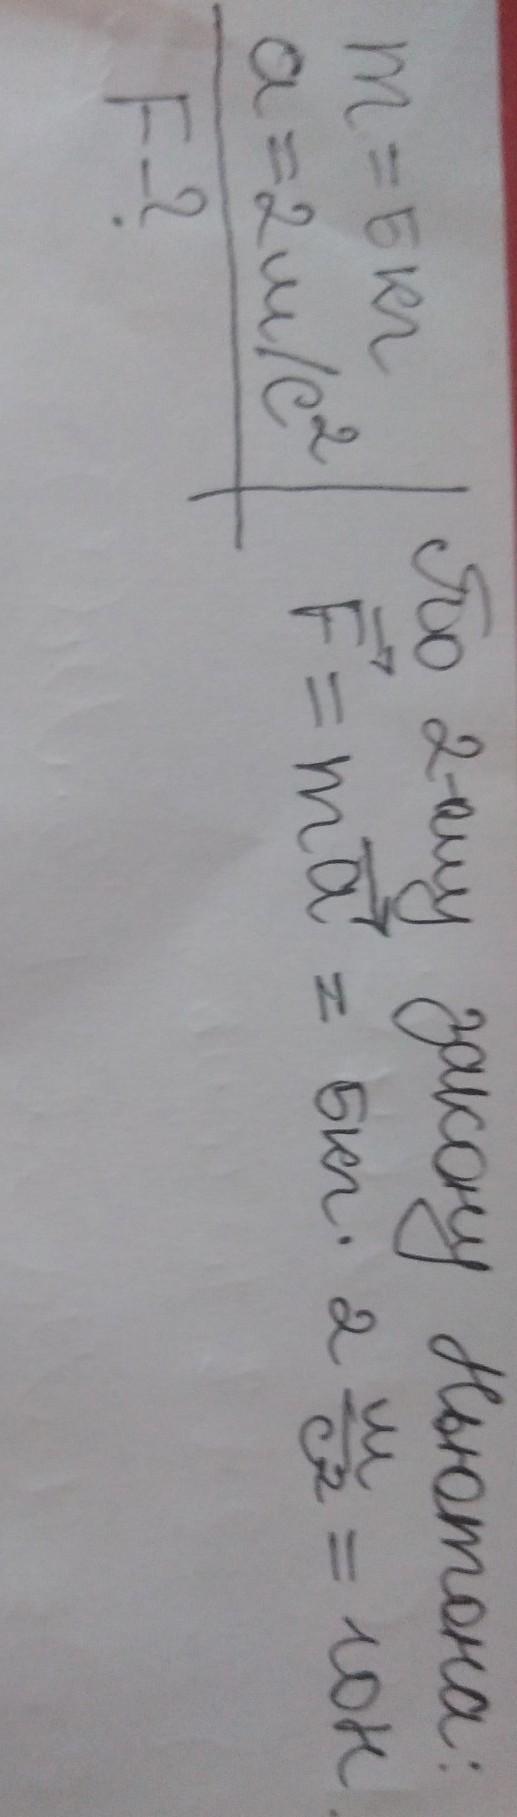 m = 5 кг
a = 2 м/с²
F - ?
По 2-ому закону Ньютона:
F⃗ = ma⃗ = 5кг · 2 м/с² = 10н.